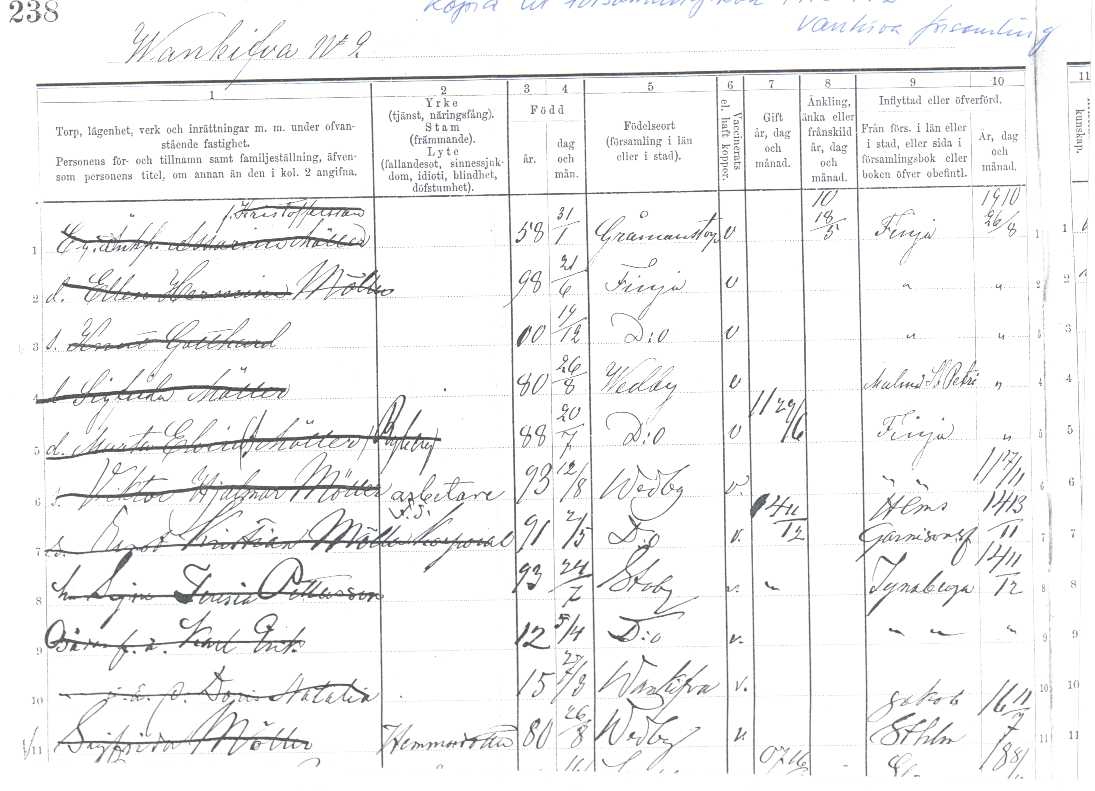 238
Kopia till församlingsbok
Vankiva församling
Wankifva No 2
1 2 3 4 5 6 7 8 9 10 11
Torp, lägenhet, verk och inrättningar m. m. under ofvan-
stående fastighet.
Personens för- och tillnamn samt familjeställning, äfven-
som personens titel, om annan än den i kol. 2 angifna.
Yrke
(tjänst, näringsfång).
Stam
(främmande).
Lyte
(fallandesot, sinnessjuk-
dom, idioti, blindhet,
döfstumhet).
Född
år.
dag
och
mån.
Födelseort
(församling i län
eller i stad).
Vaccinerats
el. haft koppor.
Gift
år, dag
och
månad.
Änkling,
änka eller
frånskild
år, dag
och
månad.
Inflyttad eller öfverförd.
Från förs. i län eller
i stad, eller sida i
församlingsbok eller
boken öfver obefintl.
År, dag
och
månad.
kunskap.
f. Kristofferson 10 1910
1 Möller 58 31/1 Gråmanstorp v 18/5 Finja 26/8 1
2 d. Ellen Möller 98 21/6 Finja v " " 2
3 s. Knut Gotthard 00 19/12 D:o v " " 3
4 Möller 80 26/8 Wedby v Malmö S:t Petri " 4
5 d. Marta Möller 88 20/7 D:o v 11 29/6 Finja " 5
6 s. Viktor Hjalmar Möller arbetare 93 12/8 Wedby v. 6
7 s. Ernst Kristian Möller Korporal 91 2/5 D:o v. 14 11/12 Garnisonsf. 1413/11 7
8 h. Signe Pettersson 93 24/7 Stoby v. " Tynaberga 14 11/12 8
9 f. ä. Karl Erik 12 5/4 D:o v. " " " 9
10 Doris Natalia 15 27/3 Wankifva v. 10
11 Sigfrida Möller Hemmadotter 80 26/8 Wedby v Sthlm 16 11/7 11
07